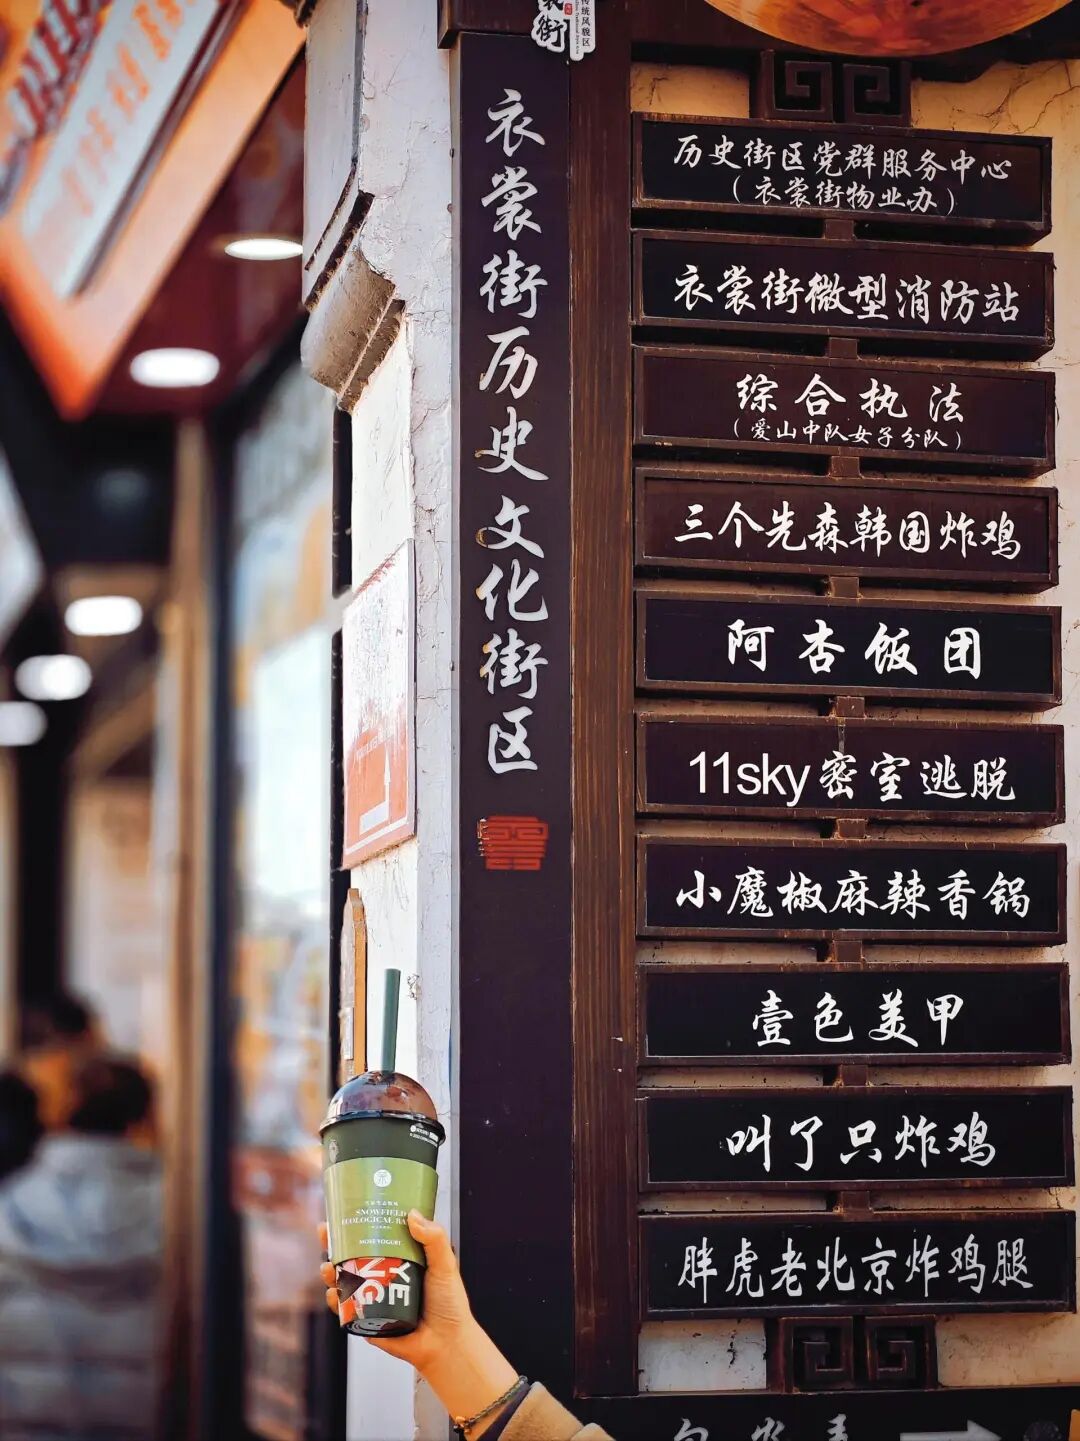 裳街
传统风貌区
衣裳街历史文化街区
历史街区党群服务中心
（衣裳街物业办）
衣裳街微型消防站
综合执法
（爱山中队女子分队）
三个先森韩国炸鸡
阿杏饭团
11sky密室逃脱
小魔椒麻辣香锅
壹色美甲
叫了只炸鸡
胖虎老北京炸鸡腿
茶
SNOWFIELD
ECOLOGICAL
MOSE YOGURT
YE
NG